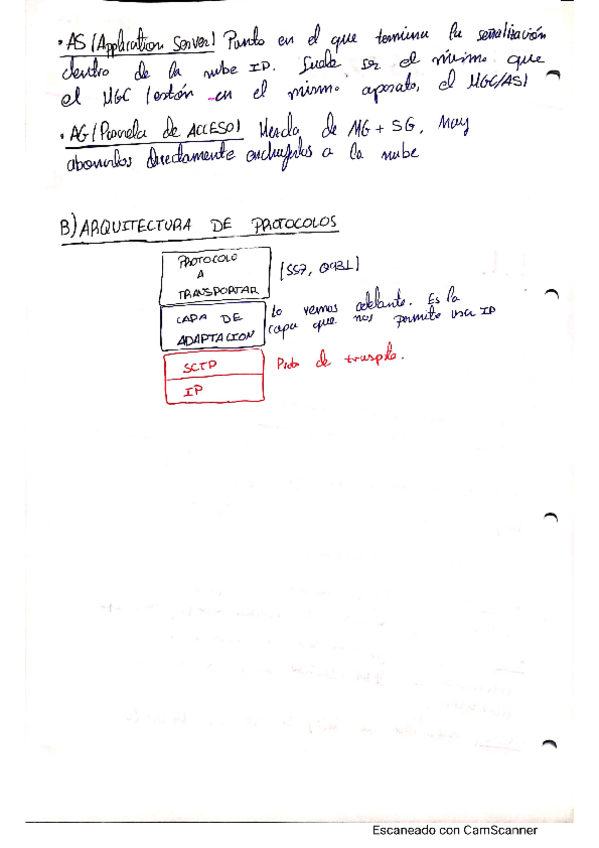 • AS (Application Server) Punto en el que termina la señalización
dentro de la nube IP. Suele ser el mismo que
el MGC (están en el mismo aparato, el MGC/AS)
• AG (Pasarela de ACCESO) Mezcla de MG + SG. Hay
abonados directamente enchufados a la nube
B) ARQUITECTURA DE PROTOCOLOS
PROTOCOLO
A
TRANSPORTAR
(SS7, Q931)
CAPA DE
ADAPTACION
Lo vemos adelante. Es la
capa que nos permite usar IP
SCTP
Proto de traspte.
IP
Escaneado con CamScanner